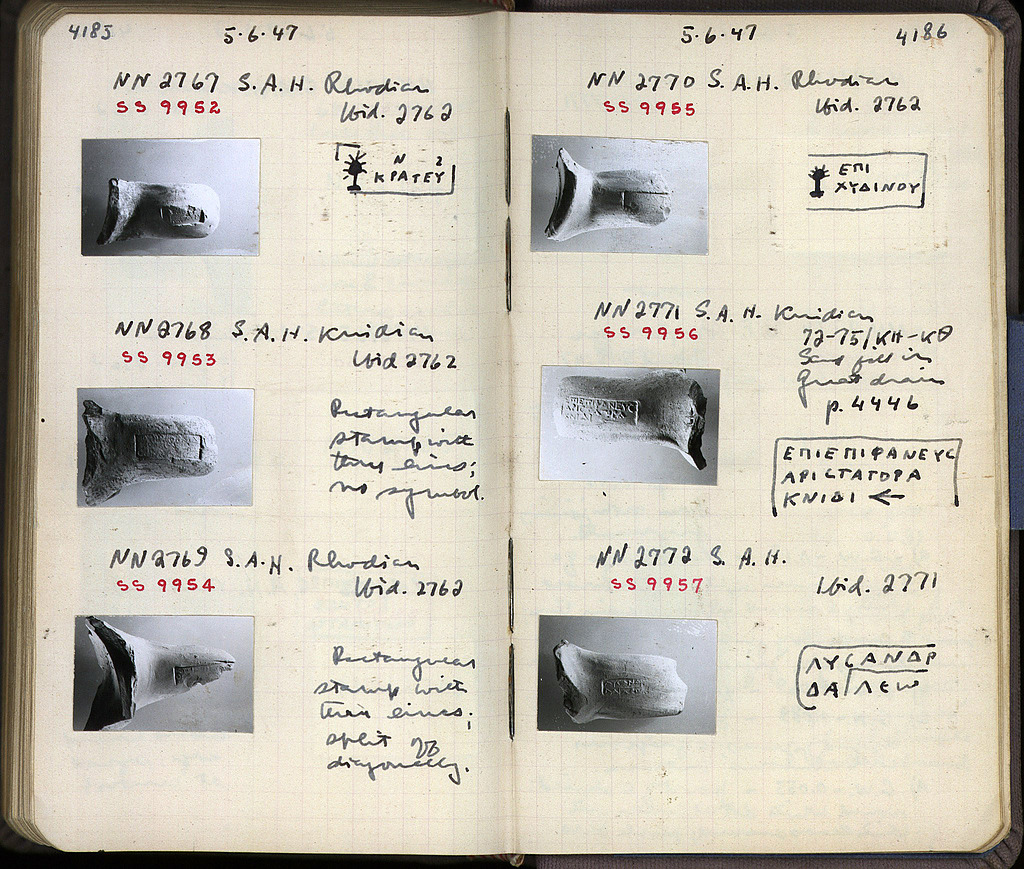 4185
5·6·47
NN 2767 S.A.H. Rhodian
SS 9952
Ibid. 2762
Ν 2
ΚΡΑΤΕΥ
NN 2768 S.A.H. Knidian
SS 9953
Ibid 2762
Rectangular
stamp with
three lines;
no symbol.
NN 2769 S.A.H. Rhodian
SS 9954
Ibid. 2762
Rectangular
stamp with
three lines;
split off
diagonally.
5·6·47
4186
NN 2770 S.A.H. Rhodian
SS 9955
Ibid. 2762
ΕΠΙ
ΧΥΔΙΝΟΥ
NN 2771 S.A.H. Knidian
SS 9956
72-75/ΚΗ-ΚΘ
Sand fill in
Great drain
p. 4446
ΕΠΙΕΠΙΦΑΝΕΥϹ
ΑΡΙϹΤΑΓΟΡΑ
ΚΝΙΔΙ ←
NN 2772 S.A.H.
SS 9957
Ibid. 2771
ΛΥϹΑΝΔΡ
ΔΑ ΛΕω